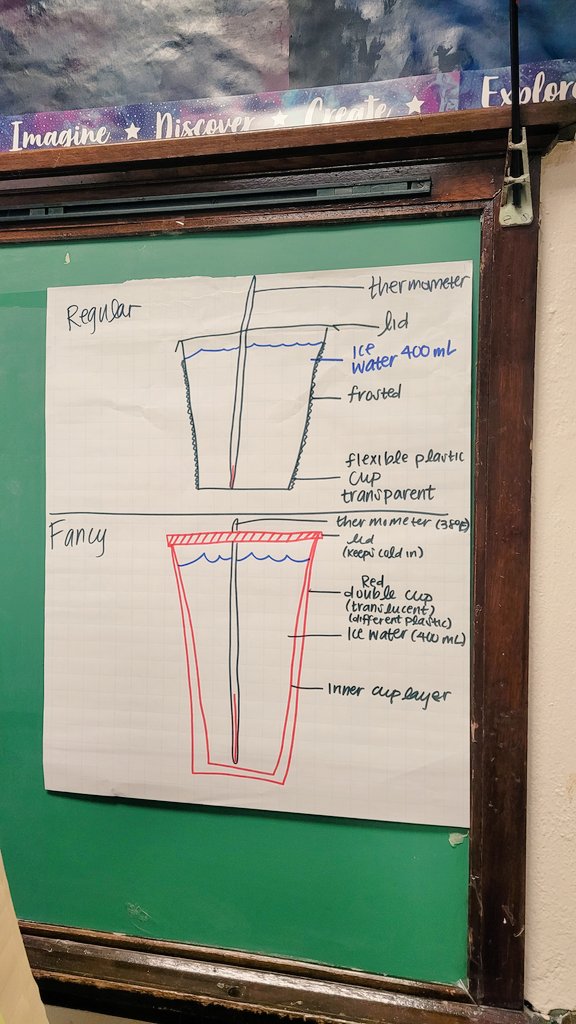 Imagine ★ Discover ★ Create ★ Explore
Regular
thermometer
lid
Ice
water 400 mL
frosted
flexible plastic
cup
transparent
Fancy
thermometer (38°F)
lid
(keeps cold in)
Red
double cup
(translucent)
(different plastic)
Ice water (400 mL)
Inner cup layer